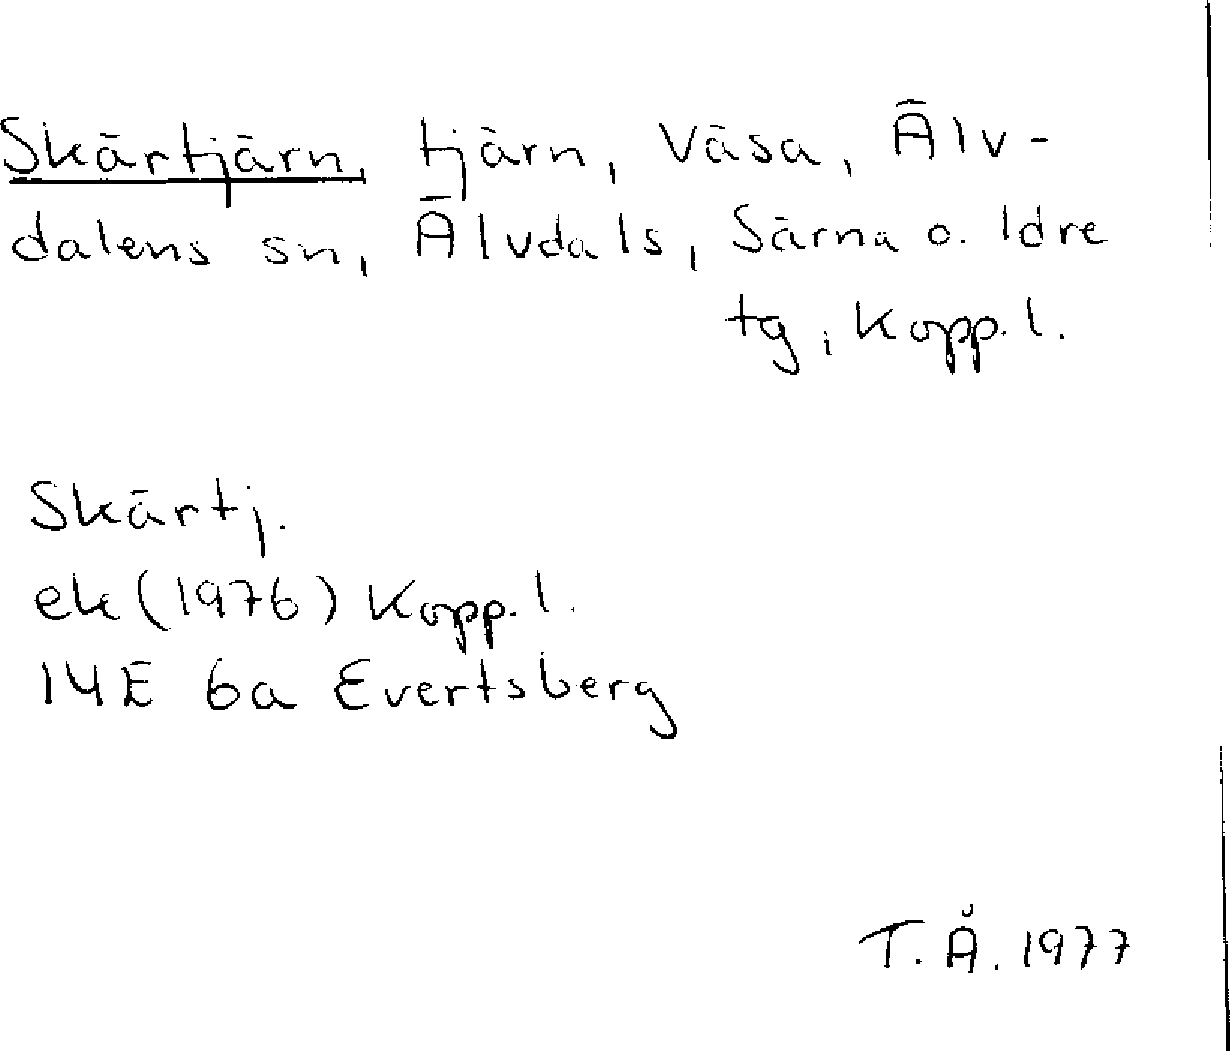 Skärtjärn, tjärn, Väsa, Älv-
dalens sn, Älvdals, Särna o. Idre
tg, Kopp. l.
Skärtj.
ek (1976) Kopp. l.
14E 6a Evertsberg
T. Å. 1977